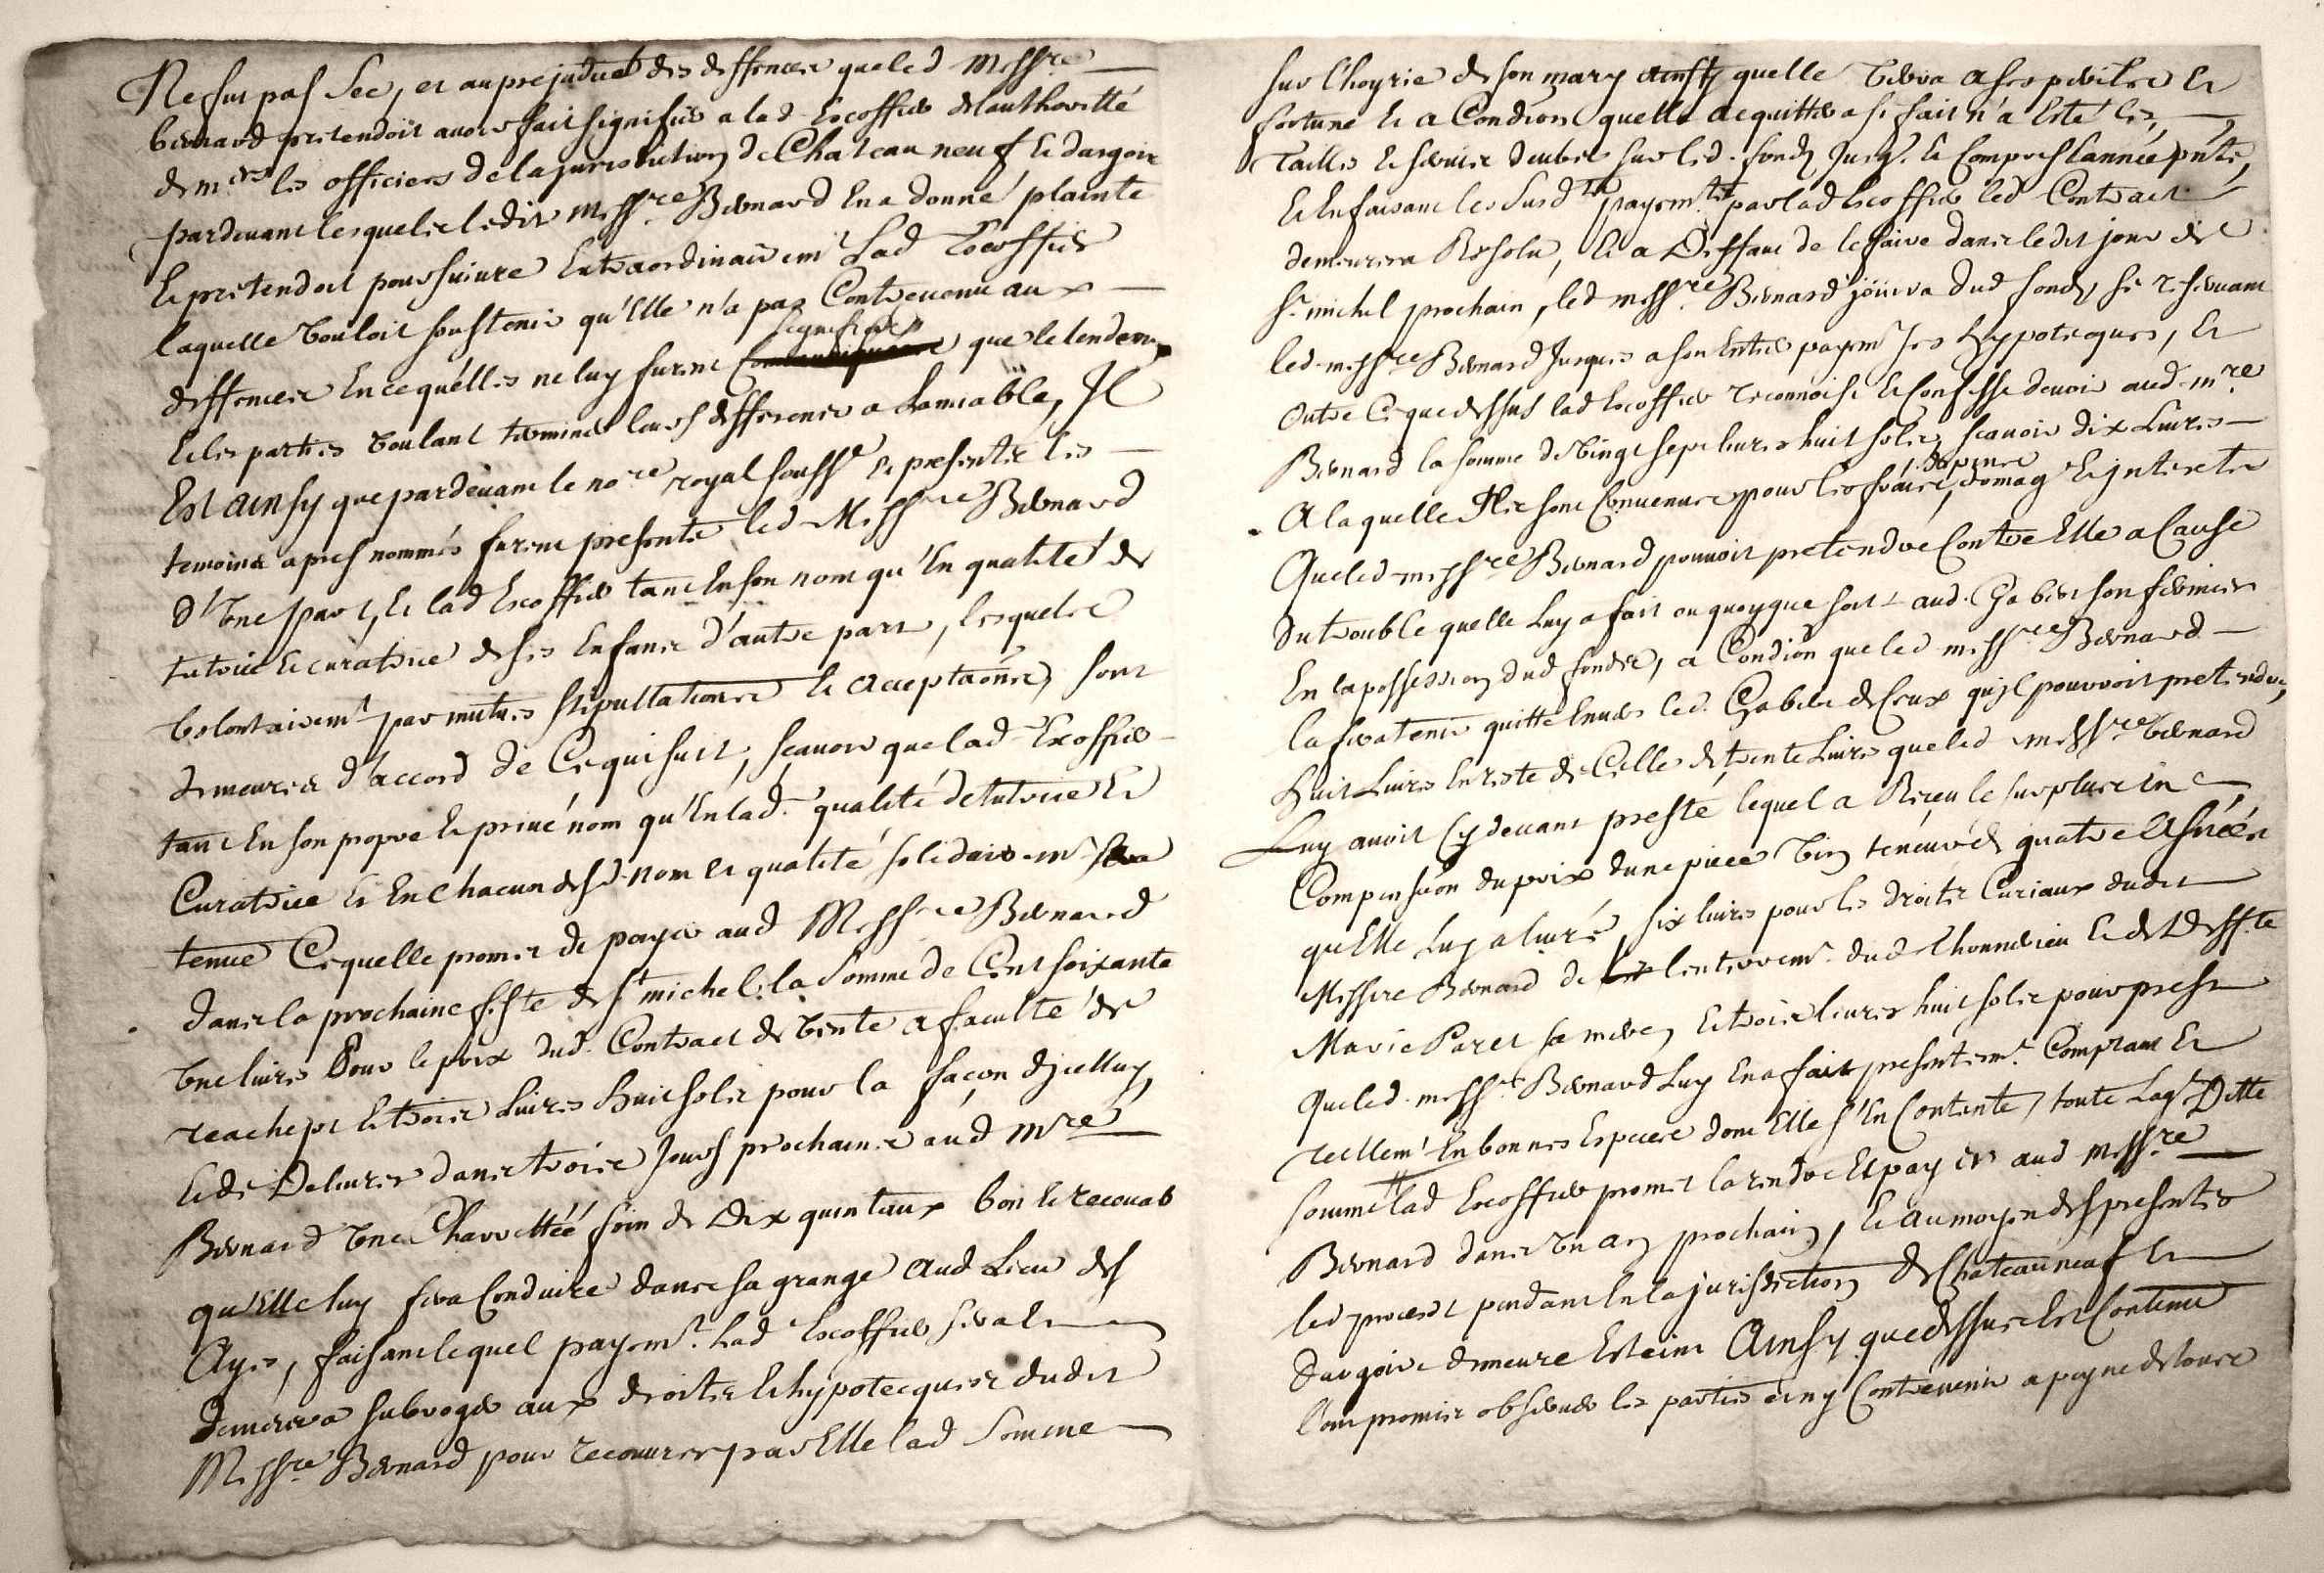 Ne fut pas Sec, et au prejudice des deffences que led Messre
bernard pretendoit avoir fait signifier a lad Escoffier de lauthoritté
de mrs les officiers de la jurisdiction de Chateauneuf et dargoire
pardevant lesquels ledit Messre Bernard en a donné plainte
et pretendoit poursuivre Extraordinairemt Lad Escoffier
laquelle vouloit soustenir qu'Elle n'a pas Contrevenu aux
deffences en ce quélles ne luy furent signifiées que le lendemain
et les parties voulant terminer leurs differens a Lamiable, Il
Est ainsy que pardevant le nore royal soussé et presents les
temoins apres nommés furent presents led Messre Bernard
d'Une part, et lad Escoffier tant en son nom qu'En qualité de
tutrice et curatrice de ses Enfans d'autre part, lesquels
volontairemt par mutues stipullations et acceptaons, sont
demeures d'accord de Ce qui suit, scavoir que lad Escoffier
tant En son propre et privé nom qu'En lad. qualité de tutrice et
Curatrice et En chacun desd. nom et qualité solidairemt sera
tenue Ce quelle promet de payer aud Messre Bernard
dans la prochaine feste de st michel la Somme de Cent soixante
Une livres Pour le prix dud. Contract de vente a faculté de
reachept et trois Livres huit sols pour la façon dicelluy,
et de Delivrer dans trois Jours prochains aud mre
Bernard Une Charrettéé foin de Dix quintaux bon et recevab
qu'Elle luy fera Conduire dans sa grange aud Lieu des
Ayes, faisant lequel payemt. Lad Escoffier sera et
demeurera subrogée aux droits et hypotecques dudit
Messre Bernard pour recouvrer par Elle lad Somme
sur l'hoyrie de son mary ainsy quelle verra a ses perils et
fortune et a Condion quelle acquittera si fait n'a Esté les
Tailles et servis deubes sur led. fonds jusqs. et Compris l'année pnte,
et En faisant les susdts payemts par lad Escoffier led Contract
demeurera Résolu, et a Deffaut de le faire dans ledit jour de
st. michel prochain, led messre Bernard jouira dud fonds se reservant
led messre Bernard Jusques a son Entier payemt Ses hypotecques, et
Outre Ce que dessus lad Escoffier reconnoist et Confesse devoir aud mre
Bernard la somme de Vingt sept livres huit sols, scavoir dix Livres
A laquelle Ils sont Convenus pour les fraix, depens, domag et Interests
Que led messre Bernard pouvoit pretendre Contre Elle a Cause
du trouble quelle luy a fait ou quoy que soit aud. Gabert son fermier
En la possession dud fonds, a Condion que led messre Bernard
la fera tenir quitte Envers led. Gabert de Ceux qu'il pourroit pretendre,
Huit Livres En reste de Celle de trente Livres que led messre bernard
Luy avoit Cy devant presté lequel a Receu le surplus en
Compensaon du prix dune piece Vin teneur de quatre asnéés
qu'Elle luy a livré, six livres pour les droits Curiaux dudit
Messire Bernard de lenterremt. dud et de Deffte
Marie Paret sa mere, et trois livres huit sols pour prest
Que led. messre Bernard Luy En a fait presentemt. Comptant et
reellemt En bonnes Especes dont Elle s'En Contente, toute Laqt Ditte
somme lad Escoffier promet la rendre Et payer aud messre
Bernard dans Un an prochain, et au moyen des presentes
led proces pendant En la jurisdiction de Chateauneuf et
dargoire demeure Esteint Ainsy que dessus Est Contenu
l'ont promis observer les parties et ny Contrevenir a peyne de tous